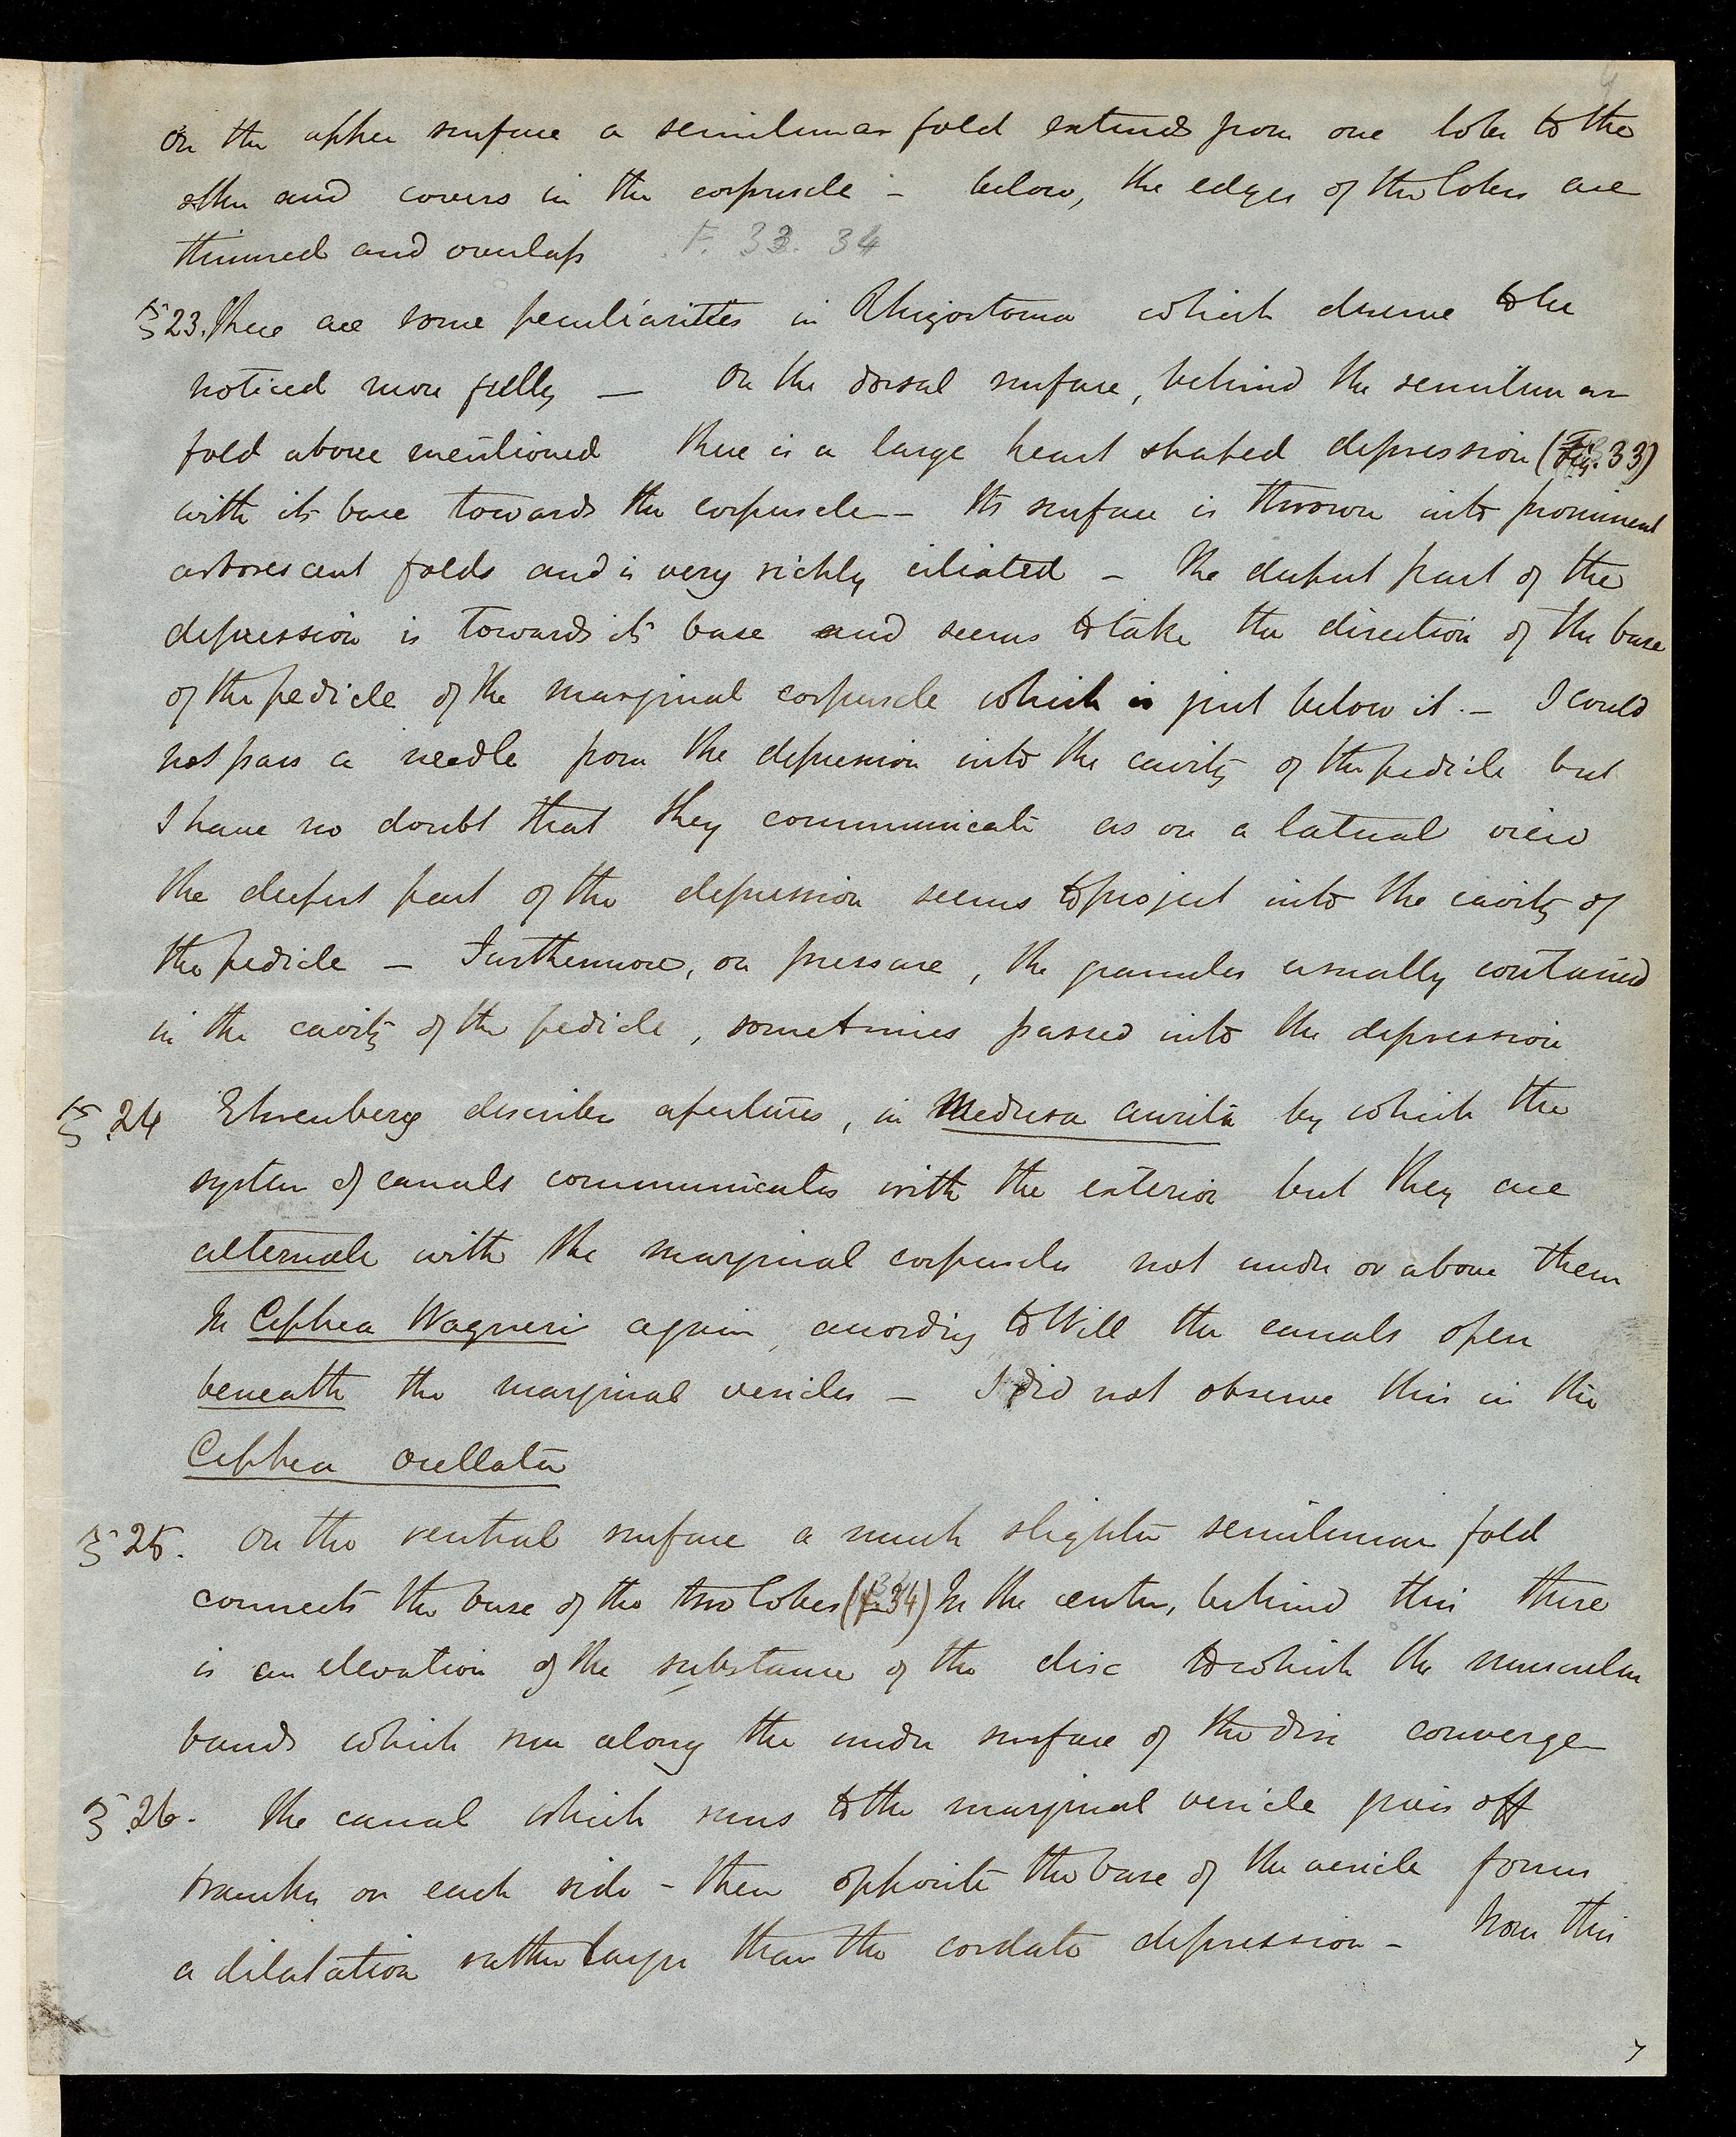 On the upper surface a semilunar fold extends from one lobe to the
other and covers in the corpuscle – below, the edges of the lobes are
thinned and overlap F. 33. 34
§ 23. There are some peculiarities in Rhizostoma which deserve to be
noticed more fully — On the dorsal surface, behind the semilunar
fold above mentioned there is a large heart shaped depression (Fig. 33)
with its base towards the corpuscle – Its surface is thrown into prominent
arborescent folds and is very richly ciliated – The deepest part of the
depression is towards its base and seems to take the direction of the base
of the pedicle of the marginal corpuscle which is just below it. – I could
not pass a needle from the depression into the cavity of the pedicle but
I have no doubt that they communicate as on a lateral view
the deepest part of the depression seems to project into the cavity of
the pedicle – Furthermore, on pressure, the granules usually contained
in the cavity of the pedicle, sometimes passed into the depression
§. 24 Ehrenberg describes apertures, in Medusa aurita by which the
system of canals communicates with the exterior but they are
alternate with the marginal corpuscles not under or above them
In Cephea Wagneri again, according to Will the canals open
beneath the marginal vesicles – I did not observe this in the
Cephea ocellata
§ 25. On the ventral surface a much slighter semilunar fold
connects the base of the two lobes (f. 34) In the centre, behind this there
is an elevation of the substance of the disc to which the muscular
bands which run along the under surface of the disc converge
§. 26. The canal which runs to the marginal vesicle gives off
branches on each side – then opposite the base of the vesicle forms
a dilatation rather larger than the cordate depression – from this
7